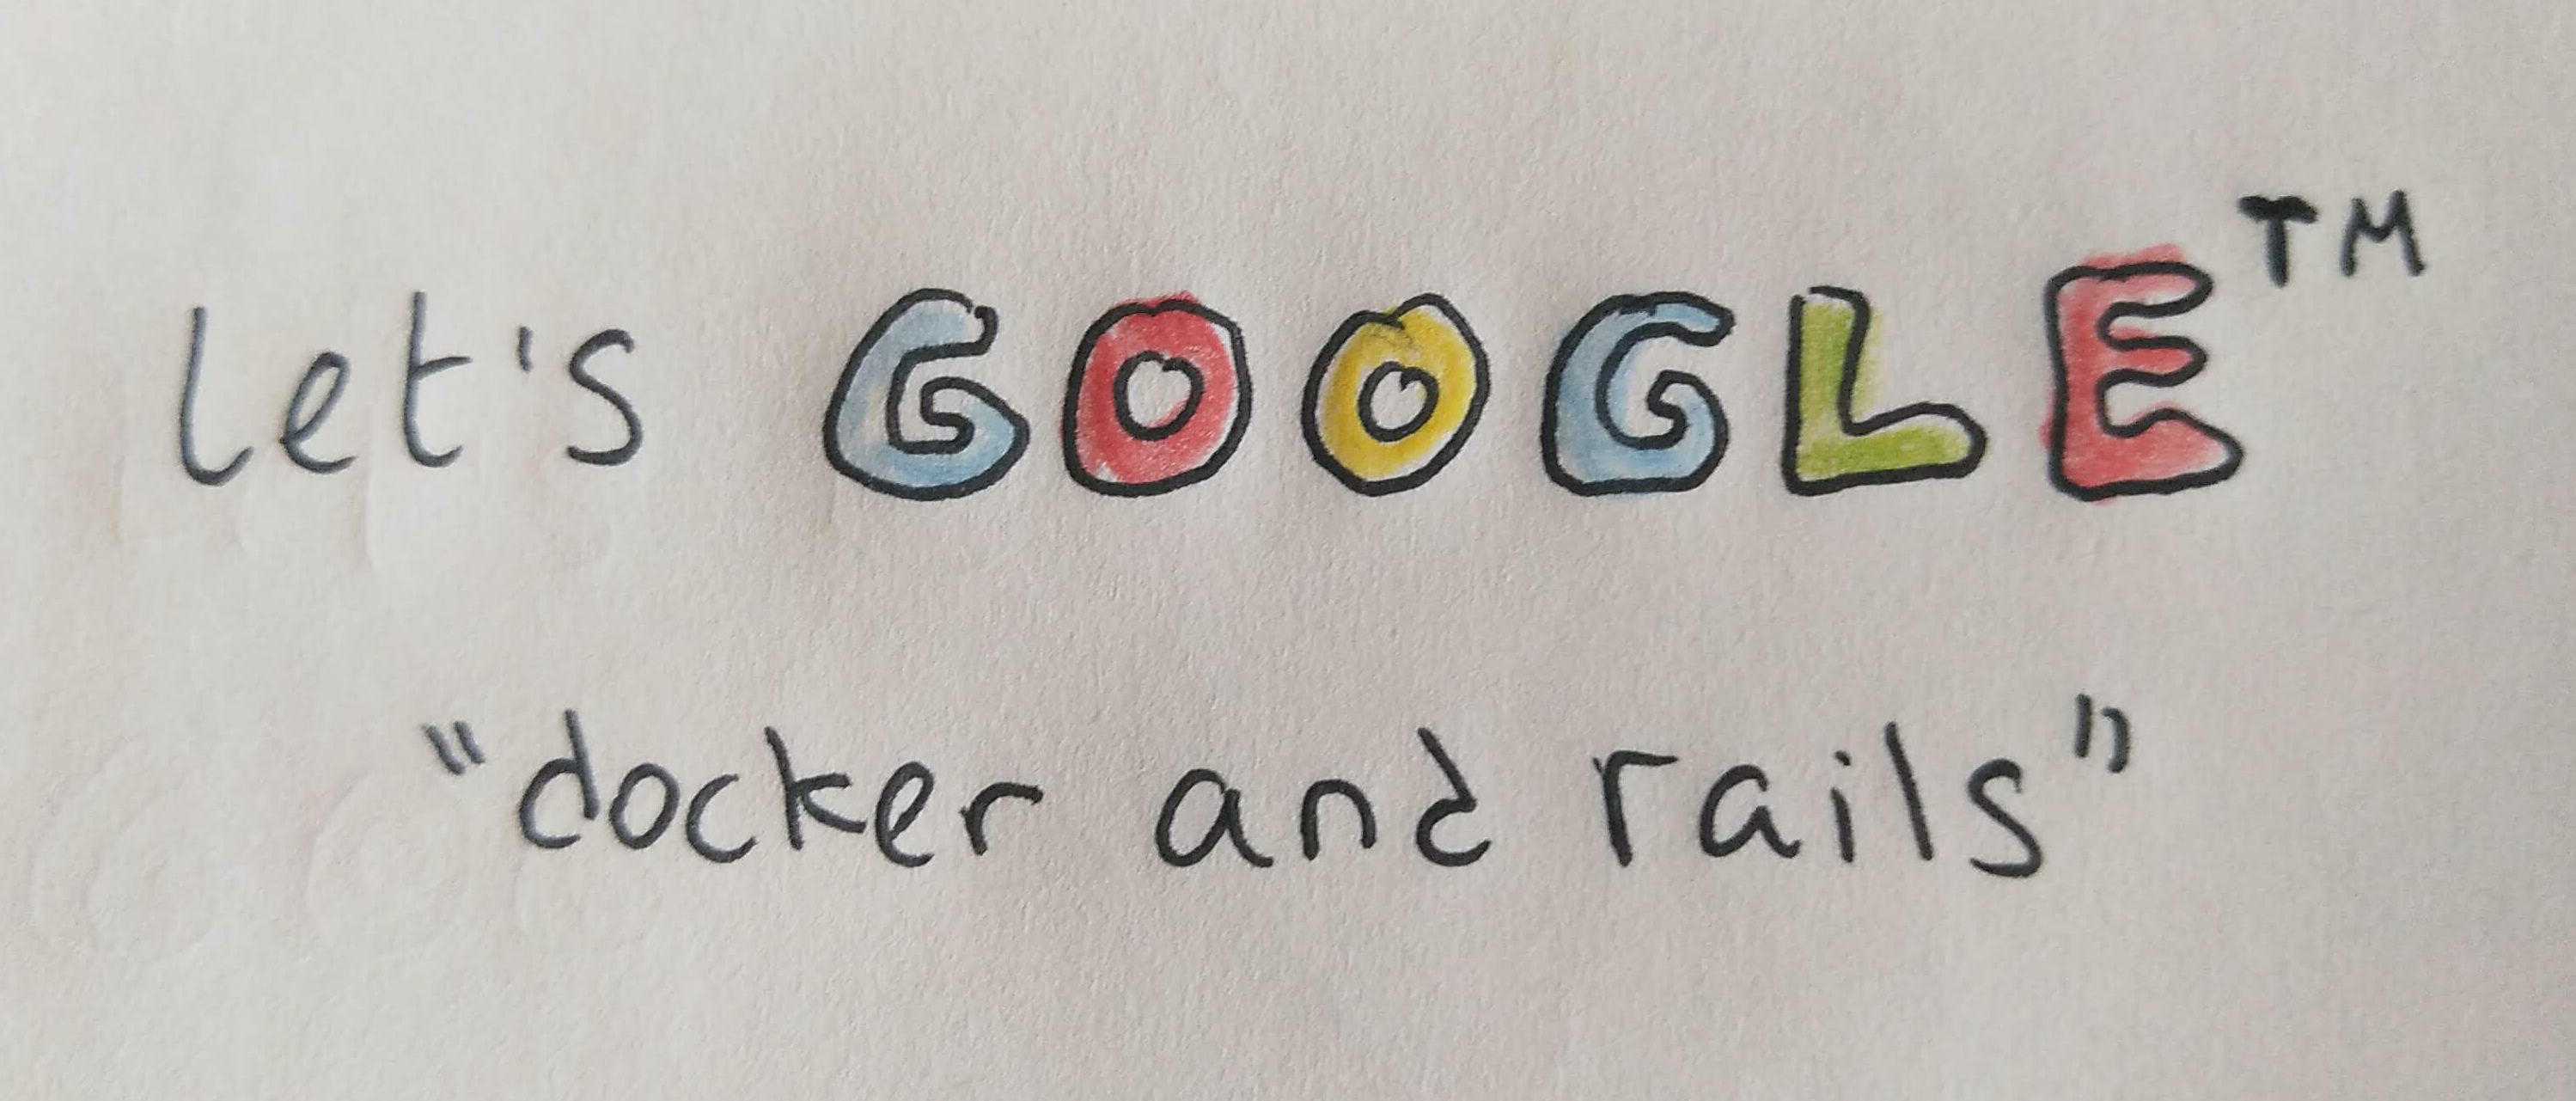 let's GOOGLE™
"docker and rails"